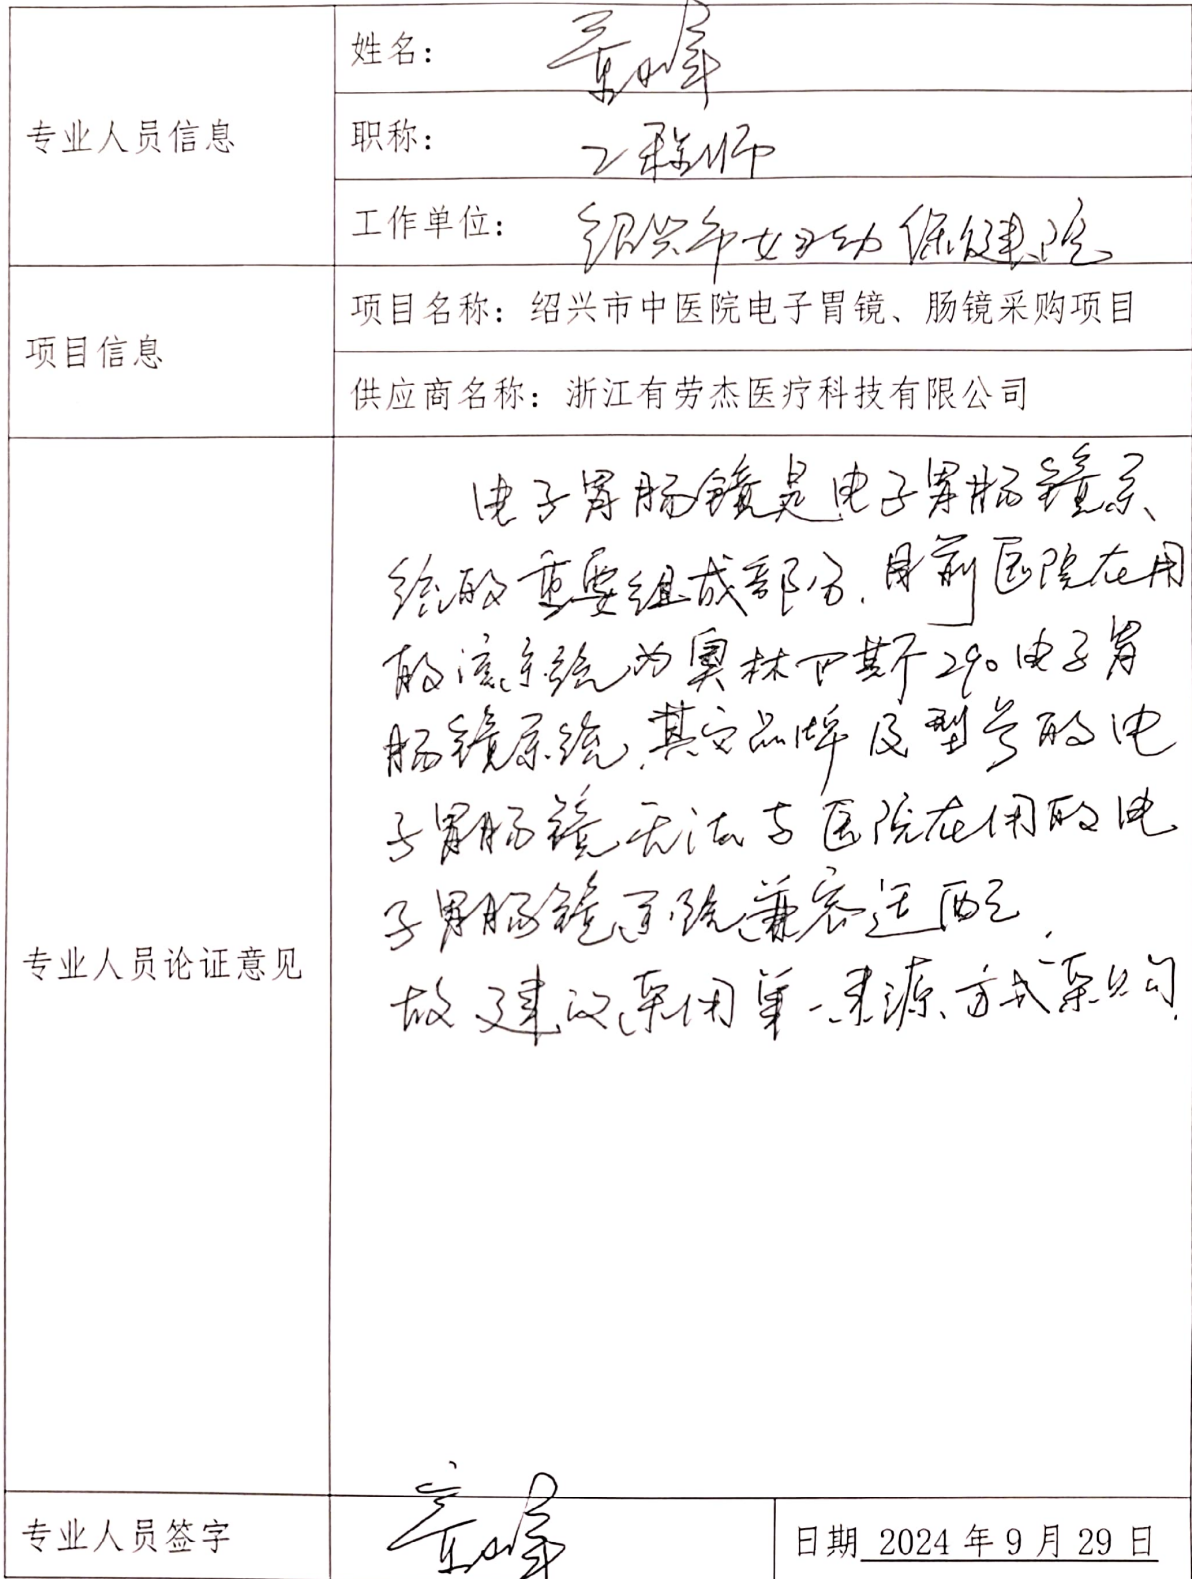 专业人员信息
姓名：
职称：工程师
工作单位：绍兴市妇幼保健院
项目信息
项目名称：绍兴市中医院电子胃镜、肠镜采购项目
供应商名称：浙江有劳杰医疗科技有限公司
专业人员论证意见
电子胃肠镜是电子胃肠镜系
统的重要组成部分，目前医院在用
的该系统为奥林巴斯290电子胃
肠镜系统，其它品牌及型号的电
子胃肠镜无法与医院在用的电
子胃肠镜系统兼容适配，
故建议采用单一来源方式采购。
专业人员签字
日期 2024年9月29日